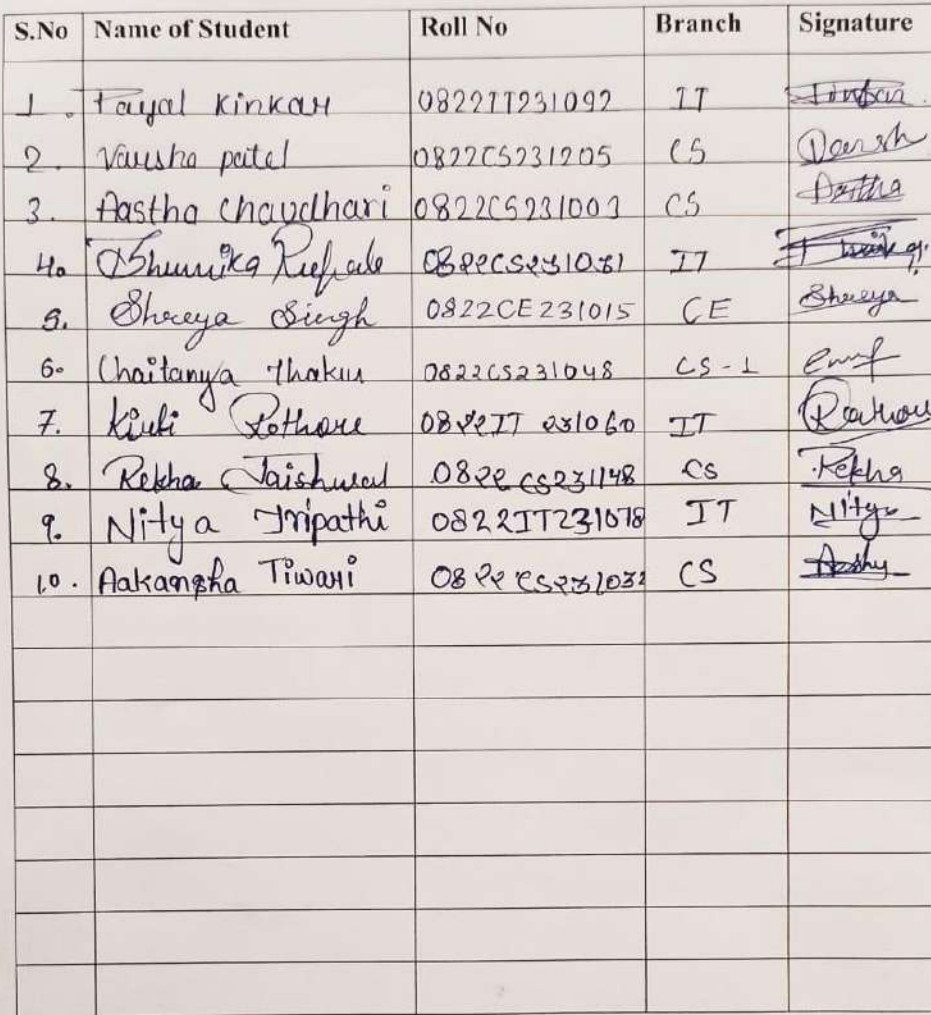 S.No Name of Student Roll No Branch Signature
1. Payal Kinkar 0822IT231092 IT
2. Varsha patel 0822CS231205 CS
3. Aastha Chaudhari 0822CS231003 CS Aastha
4. 0822CS231081 IT
5. Shreya Singh 0822CE231015 CE Shreya
6. Chaitanya Thakur 0822CS231048 CS-1
7. Kirti Rathore 0822IT 231060 IT Rathore
8. Rekha Jaishwal 0822 CS231148 CS Rekha
9. Nitya Tripathi 0822IT231078 IT Nitya
10. Aakansha Tiwari 0822 CS231032 CS